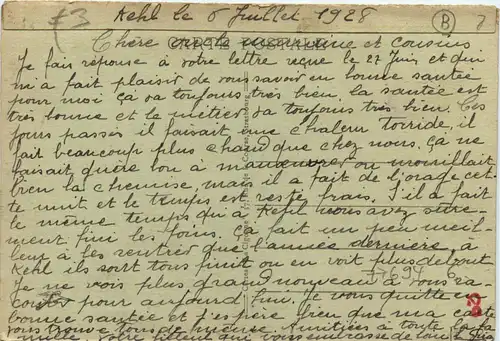 Kehl le 6 Juillet 1928
B
7
£3
Chère oncle marraine et cousins
Je fais réponse à votre lettre reçue le 27 Juin et qui
m'a fait plaisir de vous savoir en bonne santée
pour moi ça va toujours très bien, la santée est
très bonne et le métier va toujours très bien. Ces
jours passés il faisait une chaleur toride, il
fait beaucoup plus chaud que chez nous. Ça ne
faisait quère bon à manœuvrer on mouillait
bien la chemise, mais il a fait de l'orage cet-
te nuit et le temps est resté frais. S'il a fait
le même temps qu'à Kehl vous avez sûre-
ment fini les foins. Ça fait un peu meil-
leur à les rentrer que l'année dernière, à
Kehl ils sont tous finit on en voit plus debout
Je ne vois plus grand nouveau à vous ra
77694 6
conter pour aujourd'hui. Je vous quitte en
bonne santée et j'espère bien que ma carte
vous trouve tous de même. Amitiées à toute la fa